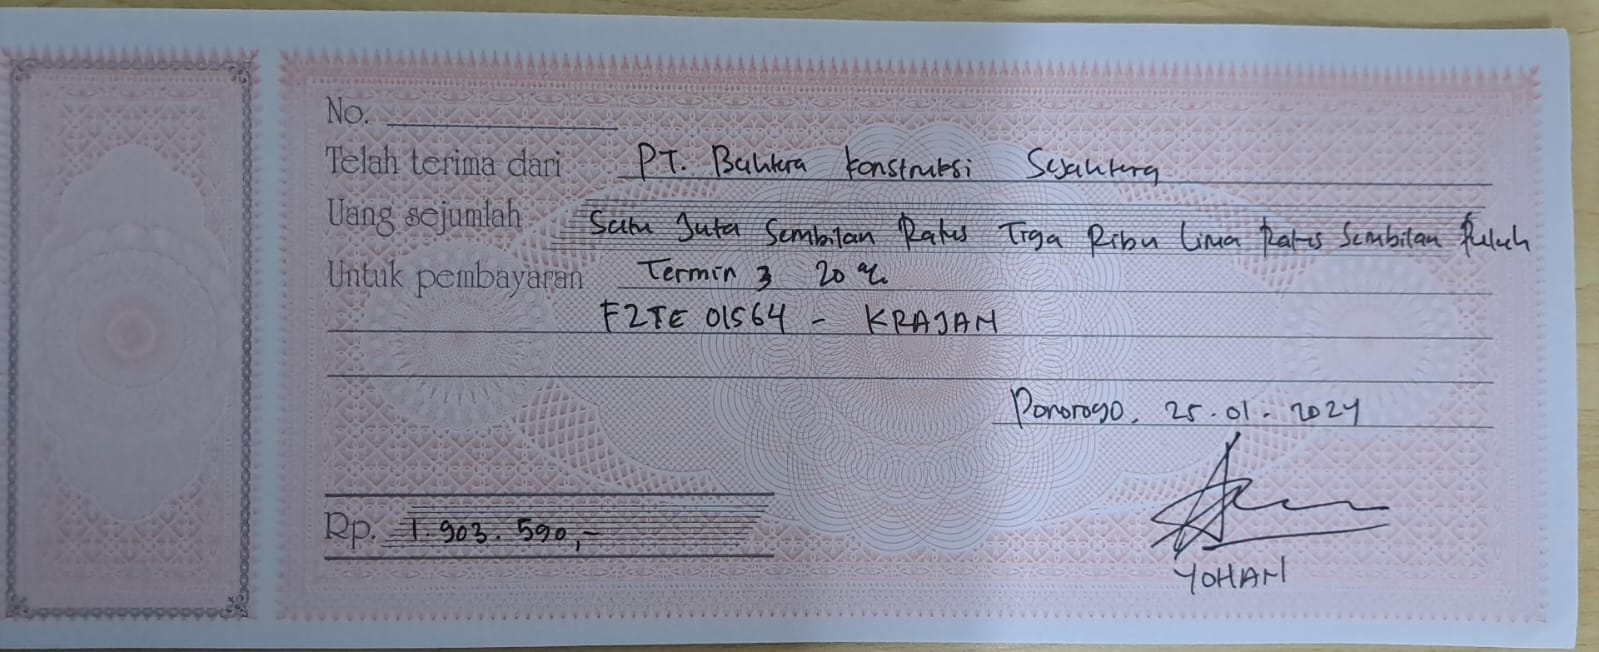 No.
Telah terima dari PT. Bahtera Konstruksi Sejahtera
Uang sejumlah Satu Juta Sembilan Ratus Tiga Ribu Lima Ratus Sembilan Puluh
Untuk pembayaran Termin 3 20%
F2TE 01564 - KRAJAN
Ponorogo, 25.01.2024
Rp. 1.903.590,-
YOHAN